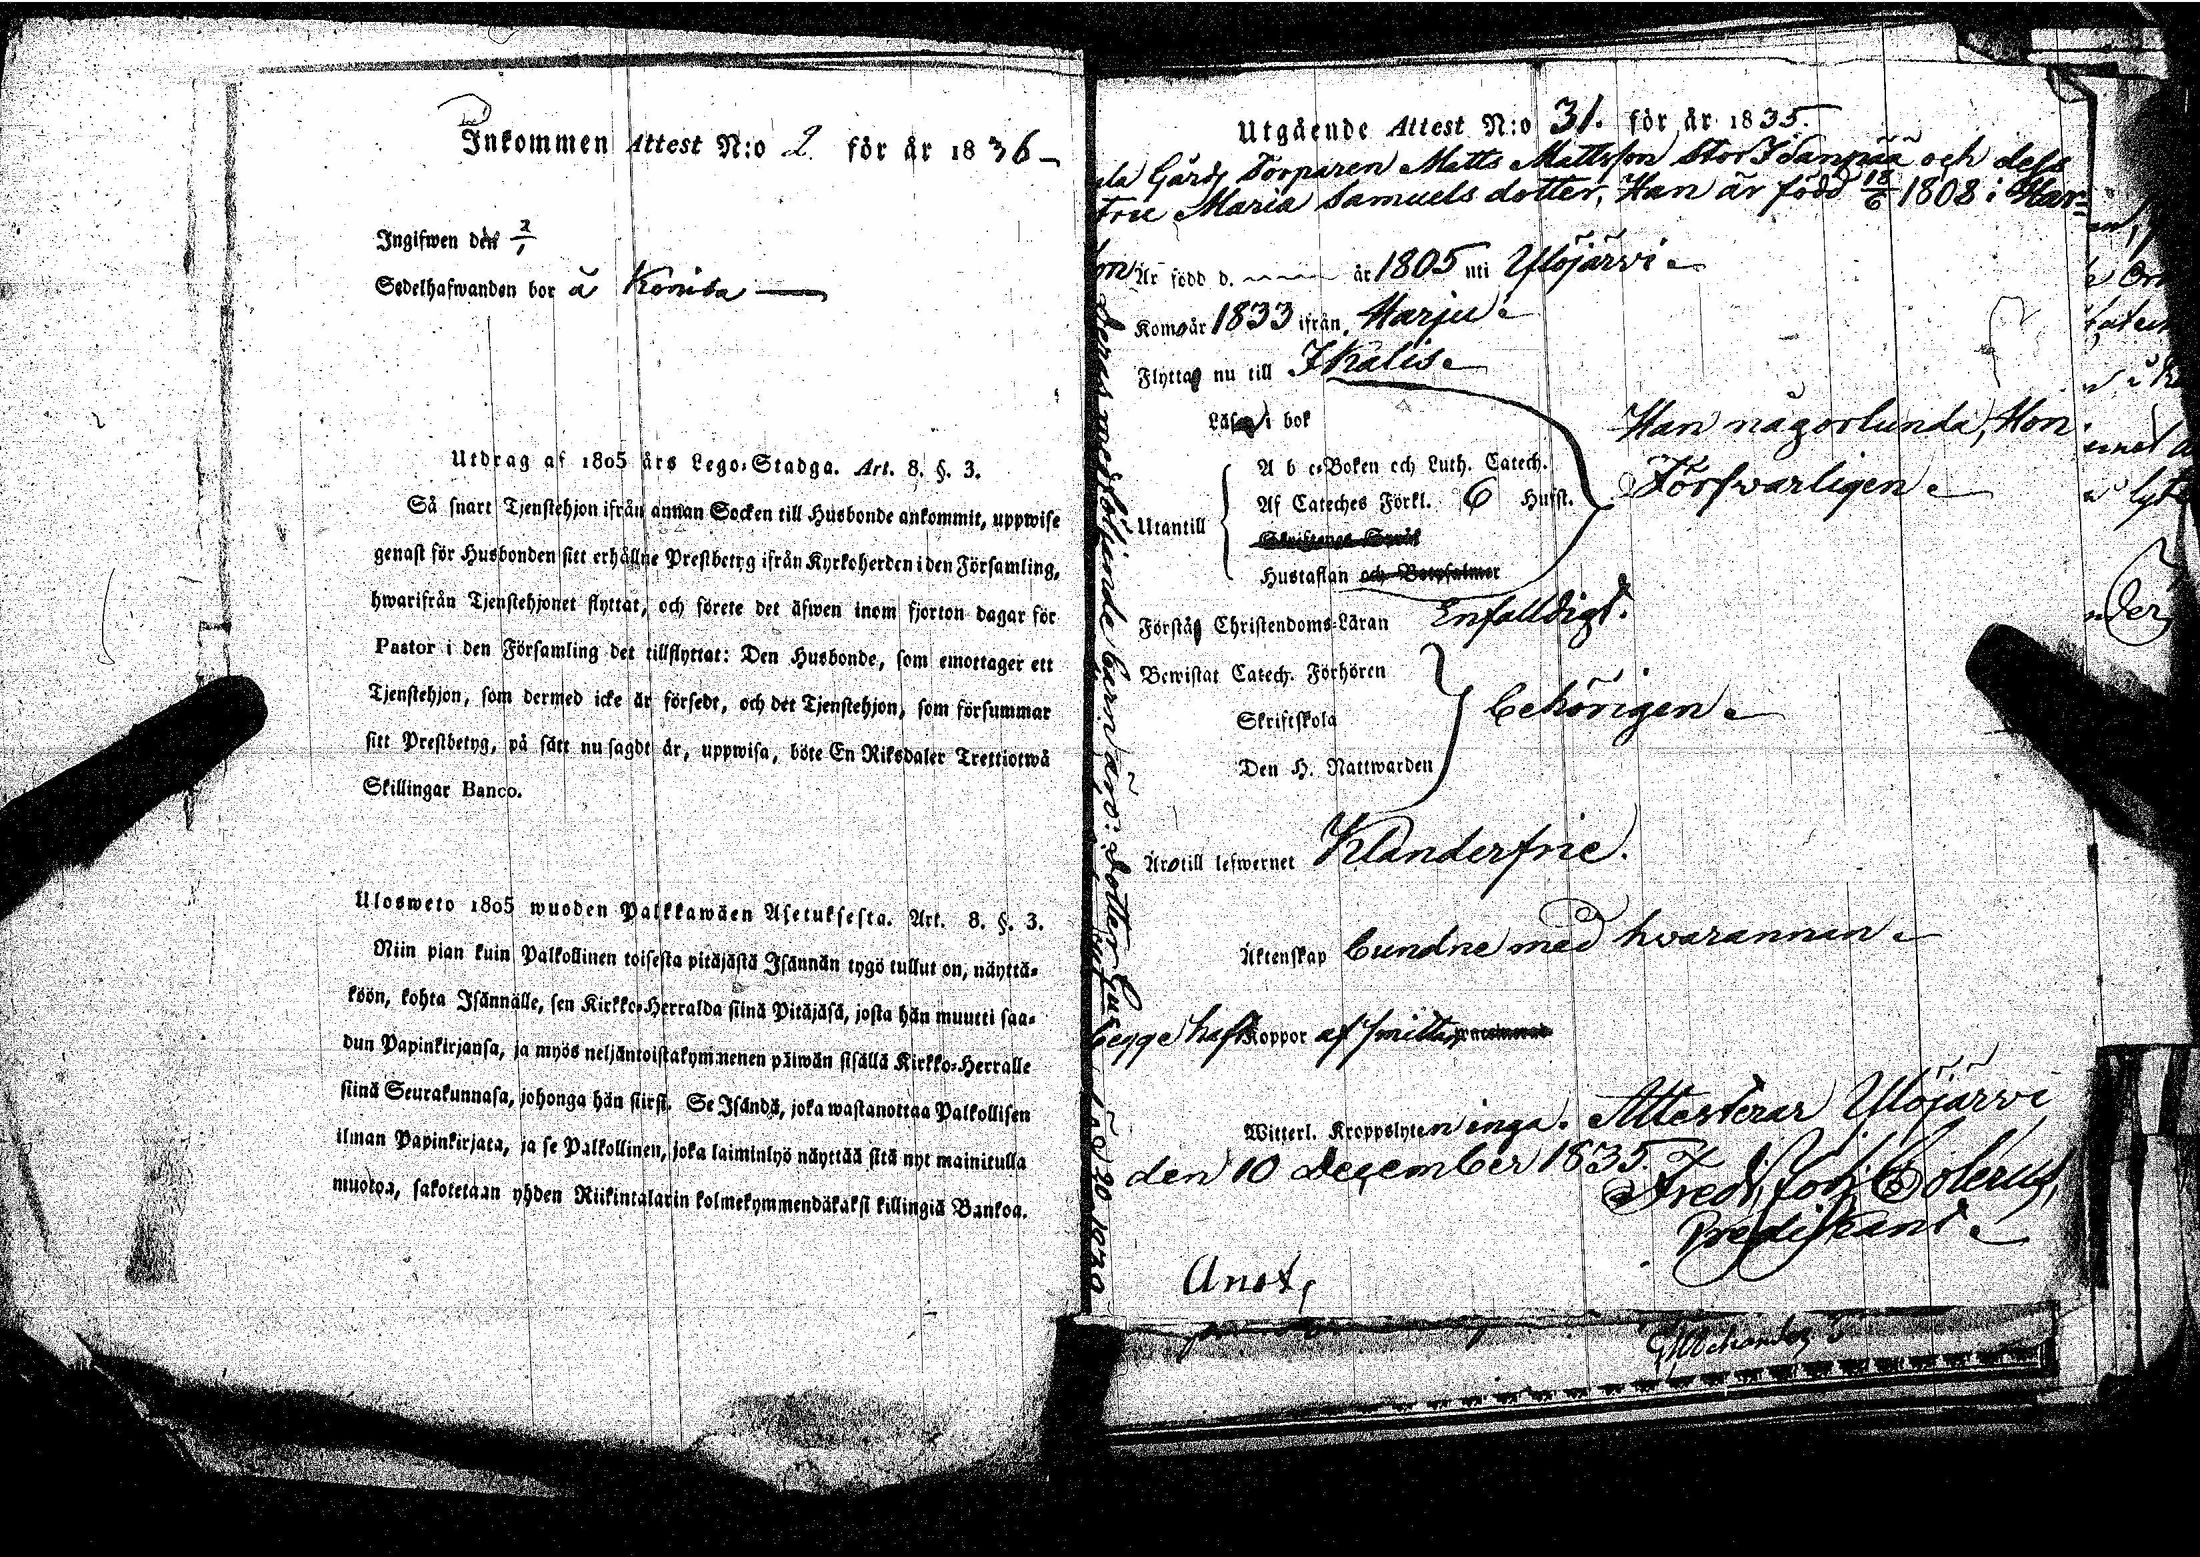 Inkommen Attest N:o 2 för år 1836
Ingifwen den 2/1
Sedelhafwanden bor å
Utdrag af 1805 års Lego-Stadga. Art. 8. §. 3.
Så snart Tjenstehjon ifrån annan Socken till Husbonde ankommit, uppwise
genast för Husbonden sitt erhållne Prestbetyg ifrån Kyrkoherden i den Församling,
hwarifrån Tjenstehjonet flyttat, och förete det äfwen inom fjorton dagar för
Pastor i den Församling det tillflyttat: Den Husbonde, som emottager ett
Tjenstehjon, som dermed icke är försedt, och det Tjenstehjon, som försummar
sitt Prestbetyg, på sätt nu sagdt är, uppwisa, böte En Riksdaler Trettiotwå
Skillingar Banco.
Ulosweto 1805 wuoden Palkkawäen Asetuksesta. Art. 8. §. 3.
Niin pian kuin Palkollinen toisesta pitäjästä Isännän tygö tullut on, näyttä-
köön, kohta Isännälle, sen Kirkko-Herralda siinä Pitäjäsä, josta hän muutti saa-
dun Papinkirjansa, ja myös neljäntoistakymmenen päiwän sisällä Kirkko-Herralle
siinä Seurakunnasa, johonga hän siirsi. Se Isändä, joka wastanottaa Palkollisen
ilman Papinkirjata, ja se Palkollinen, joka laiminlyö näyttää sitä nyt mainitulla
muotoa, sakotetaan yhden Riikintalarin kolmekymmendäkaksi killingiä Bankoa.
Utgående Attest N:o 31. för år 1835.
Gårds Torparen Matts Mattsson Stor Idanpää och dess
Maria Samuels dotter, Han är född 18/6 1808 i Har-
Är född d. år 1805 uti Ylöjärvi
Kom år 1833 ifrån Harju
Flytta nu till Ikalis
Läsa i bok
Han någorlunda, Hon
A b c-Boken och Luth. Catech.
Försvarligen
Af Cateches Förkl. 6 Hufst.
Utantill
Hustaflan och Botpsalmer
Förstå Christendoms-Läran Enfalldigt.
Bewistat Catech. Förhören
Skriftskola behörigen
Den H. Nattwarden
Äro till lefwernet Klanderfrie.
Äktenskap bundne med hvarannan
begge haft Koppor af smittan
Witterl. Kroppslyten inga. Attesterar Ylöjärvi
den 10 December 1835.
Fredr. Joh.
Predikant
deras medföljande barn äro: Dotter